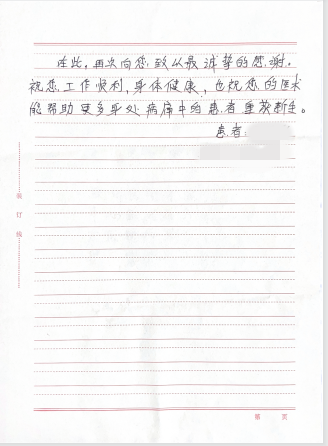 在此，再次向您致以最诚挚的感谢。
祝您工作顺利，身体健康，也祝您的医术
能帮助更多身处病痛中的患者重获新生。
患者：
装
订
线
第 页